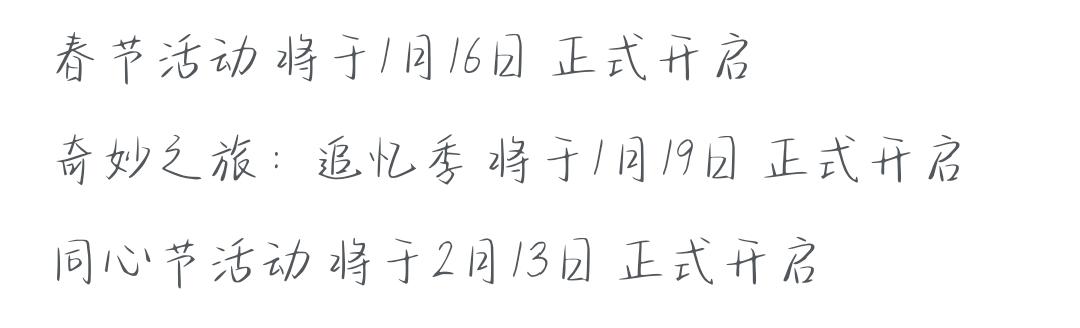 春节活动 将于1月16日 正式开启
奇妙之旅：追忆季 将于1月19日 正式开启
同心节活动 将于2月13日 正式开启